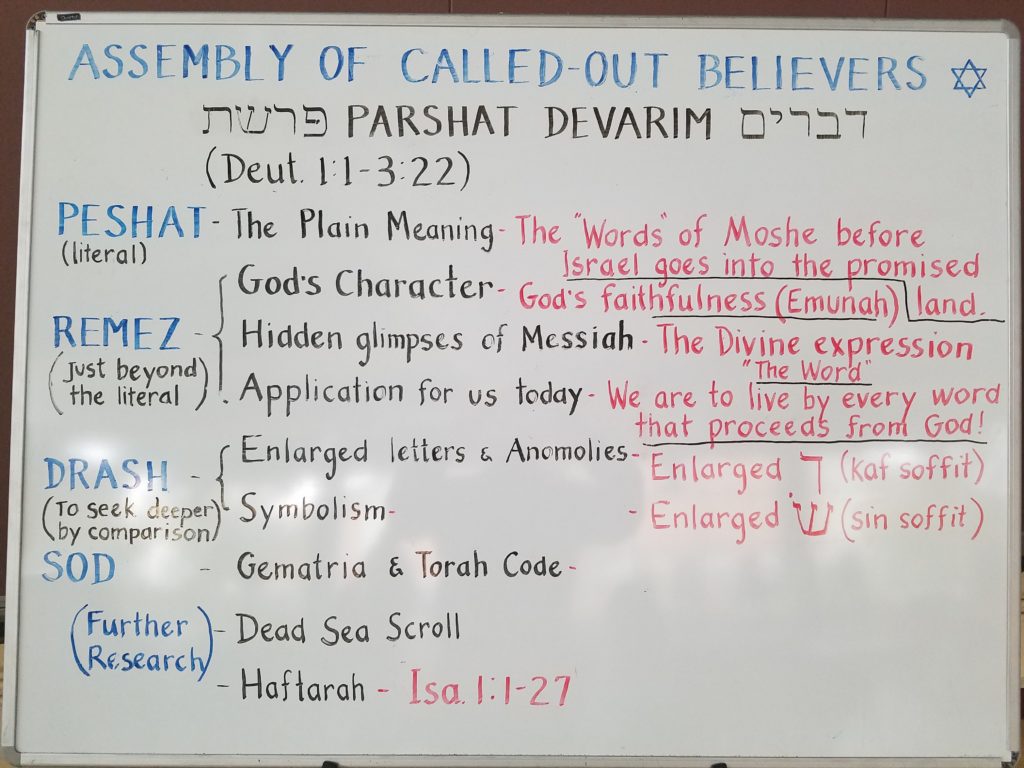 ASSEMBLY OF CALLED-OUT BELIEVERS ✡
פרשת PARSHAT DEVARIM דברים
(Deut. 1:1-3:22)
PESHAT - The Plain Meaning - The "Words" of Moshe before
(literal) Israel goes into the promised
land.
God's Character - God's faithfulness (Emunah)
REMEZ - Hidden glimpses of Messiah - The Divine expression
"The Word"
(Just beyond
the literal)
Application for us today - We are to live by every word
that proceeds from God!
Enlarged letters & Anomolies - Enlarged ך (kaf soffit)
DRASH -
(To seek deeper
by comparison)
Symbolism - - Enlarged שׂ (sin soffit)
SOD - Gematria & Torah Code -
(Further
Research)
- Dead Sea Scroll
- Haftarah - Isa. 1:1-27